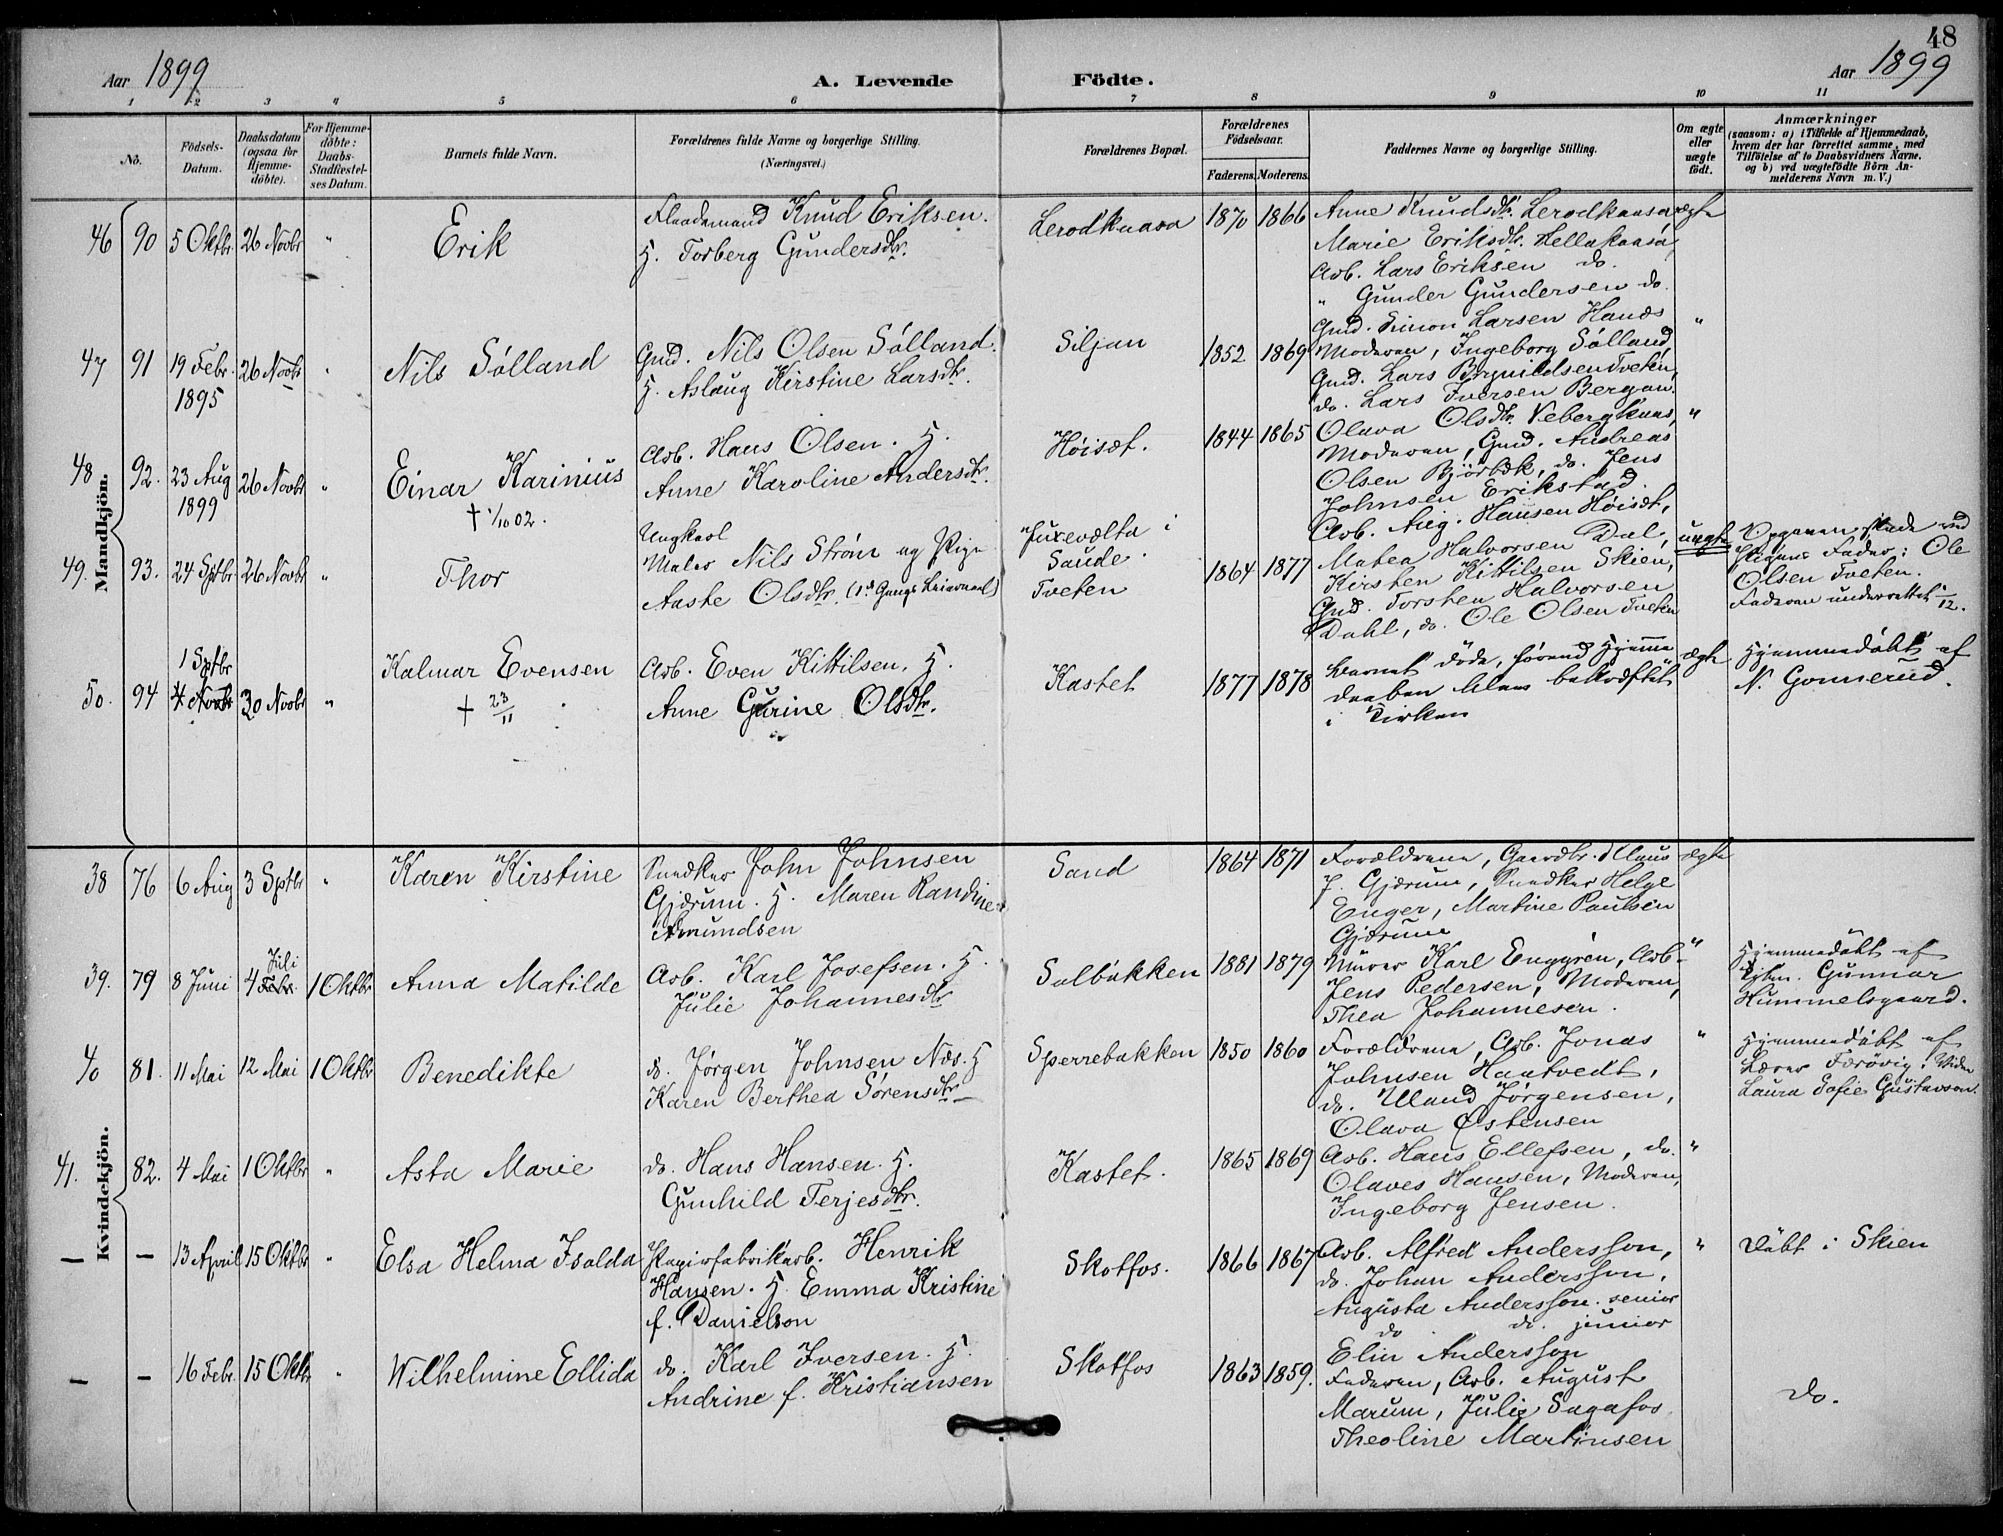 48
Aar 1899 A. Levende Födte. Aar 1899
1 2 3 4 5 6 7 8 9 10 11
No.
Födsels-
Datum.
Daabsdatum
(ogsaa for
Hjemme-
döbte).
For Hjemme-
döbte:
Daabs-
Stadfæstel-
ses Datum.
Barnets fulde Navn.
Forældrenes fulde Navne og borgerlige Stilling.
(Næringsvei.)
Forældrenes Bopæl.
Forældrenes
Födselsaar.
Faderens. Moderens.
Faddernes Navne og borgerlige Stilling.
Om ægte
eller
uægte
födt.
Anmærkninger
(saasom: a) i Tilfælde af Hjemmedaab,
hvem der har forrettet samme, med
Tilföielse af to Daabsvidners Navne,
og b) ved uægtefödte Börn An-
melderens Navn m. V.)
Mandkjön.
46 90 5 Oktbr. 26 Novbr "
Erik
Flaadamand Knud Eriksen.
H. Torberg Gundersdtr.
Lerodkaasa
1870 1866
Anne Knudsdtr. Lerodkaasa
Marie Eriksdtr. Hellakaasa
Arb. Lars Eriksen do.
" Gunder Gundersen do.
ægte
47 91 19 Febr. 26 Novbr "
1895
Nils Sölland
Gmd. Nils Olsen Sölland.
H. Aslaug Kirstine Larsdtr.
Siljan
1852 1869
Gmd. Simon Larsen Hanæs
Moderen, Ingeborg Sölland,
Gmd. Lars Brynildsen Tveten,
do. Lars Iversen Bergan.
"
48 92. 23 Aug 26 Novbr "
1899
Einar Karinius
† 1/10 02.
Arb. Hans Olsen. H.
Anne Karoline Andersdtr.
Höisæt.
1844 1865
Olava Olsdtr. Vebergkaas,
Moderen, Gmd. Andreas
Olsen Björbæk, do. Jens
Johnsen Erikstad.
Arb. Aug. Hansen Höisæt,
"
49. 93. 24 Sptbr 26 Novbr "
Thor
Ungkarl
Maler Nils Ström og Pige
Aaste Olsdtr. (1ste Gangs Leiermaal)
Jurevælta i
Saude.
Tveten
1864 1877
Matea Halvorsen Dal,
Kirsten Kittilsen Skien,
Gmd. Torsten Halvorsen
Dahl, do. Ole Olsen Tveten
uægte
Opgaven skede ved
Pigens Fader: Ole
Olsen Tveten.
Faderen underrettet 1/12.
50. 94 1 Sptbr
4 Novbr 30 Novbr "
Kalmar Evensen
† 23/11
Arb. Even Kittilsen, H.
Anne Gurine Olsdtr.
Kastet
1877 1878
Barnet döde, förend Hjemme
daaben blev bekræftet
i Kirken
ægte
Hjemmedöbt af
N. Gonnerud.
Kvindekjön.
38 76 6 Aug 3 Sptbr "
Karen Kirstine
Snedker John Johnsen
Gjærum. H. Maren Randine
Amundsen
Sand
1864 1871
Forældrene, Gaardbr. Klaus
J. Gjærum, Snedker Helge
Enger, Martine Paulsen
Gjærum
ægte
39. 79 8 Juni 4 Juli
Febr. 1 Oktbr
Anna Matilde
Arb. Karl Josefsen. H.
Julie Johannesdtr
Salbakken
1881 1879
Murer Karl Enggren, Arb.
Jens Pedersen, Moderen,
Thea Johannesen.
"
Hjemmedöbt af
Gunnar
Hummelsgaard.
40 81. 11 Mai 12 Mai 1 Oktbr
Benedikte
do. Jörgen Johnsen Næs. H
Karen Berthea Sörensdtr
Sperrebakken
1850 1860
Forældrene, Arb. Jonas
Johnsen Haatvedt,
do. Uland Jörgensen,
Olava Östensen
"
Hjemmedöbt af
Lærer Færövig. Vidne
Laura Sofie Gustavson.
41. 82. 4 Mai 1 Oktbr "
Asta Marie
do. Hans Hansen. H.
Gunhild Terjesdtr.
Kastet.
1865 1869
Arb. Hans Ellefsen, do.
Olaves Hansen, Moderen,
Ingeborg Jensen.
"
— — 13 April 15 Oktbr "
Elsa Helma Isolda
Papirfabrikarb. Henrik
Hansen. H. Emma Kristine
f. Danielson
Skotfos.
1866 1867
Arb. Alfred Andersson,
do. Johan Andersson.
Augusta Andersson senior
do. do. junior
Elin Andersson
"
Döbt i Skien
— — 16 Febr. 15 Oktbr "
Wilhelmine Ellida
do. Karl Iversen. H.
Andrine f. Kristiansen
Skotfos
1863 1859.
Faderen, Arb. August
Marum, Julie Sagafos
Theoline Martinsen
do.